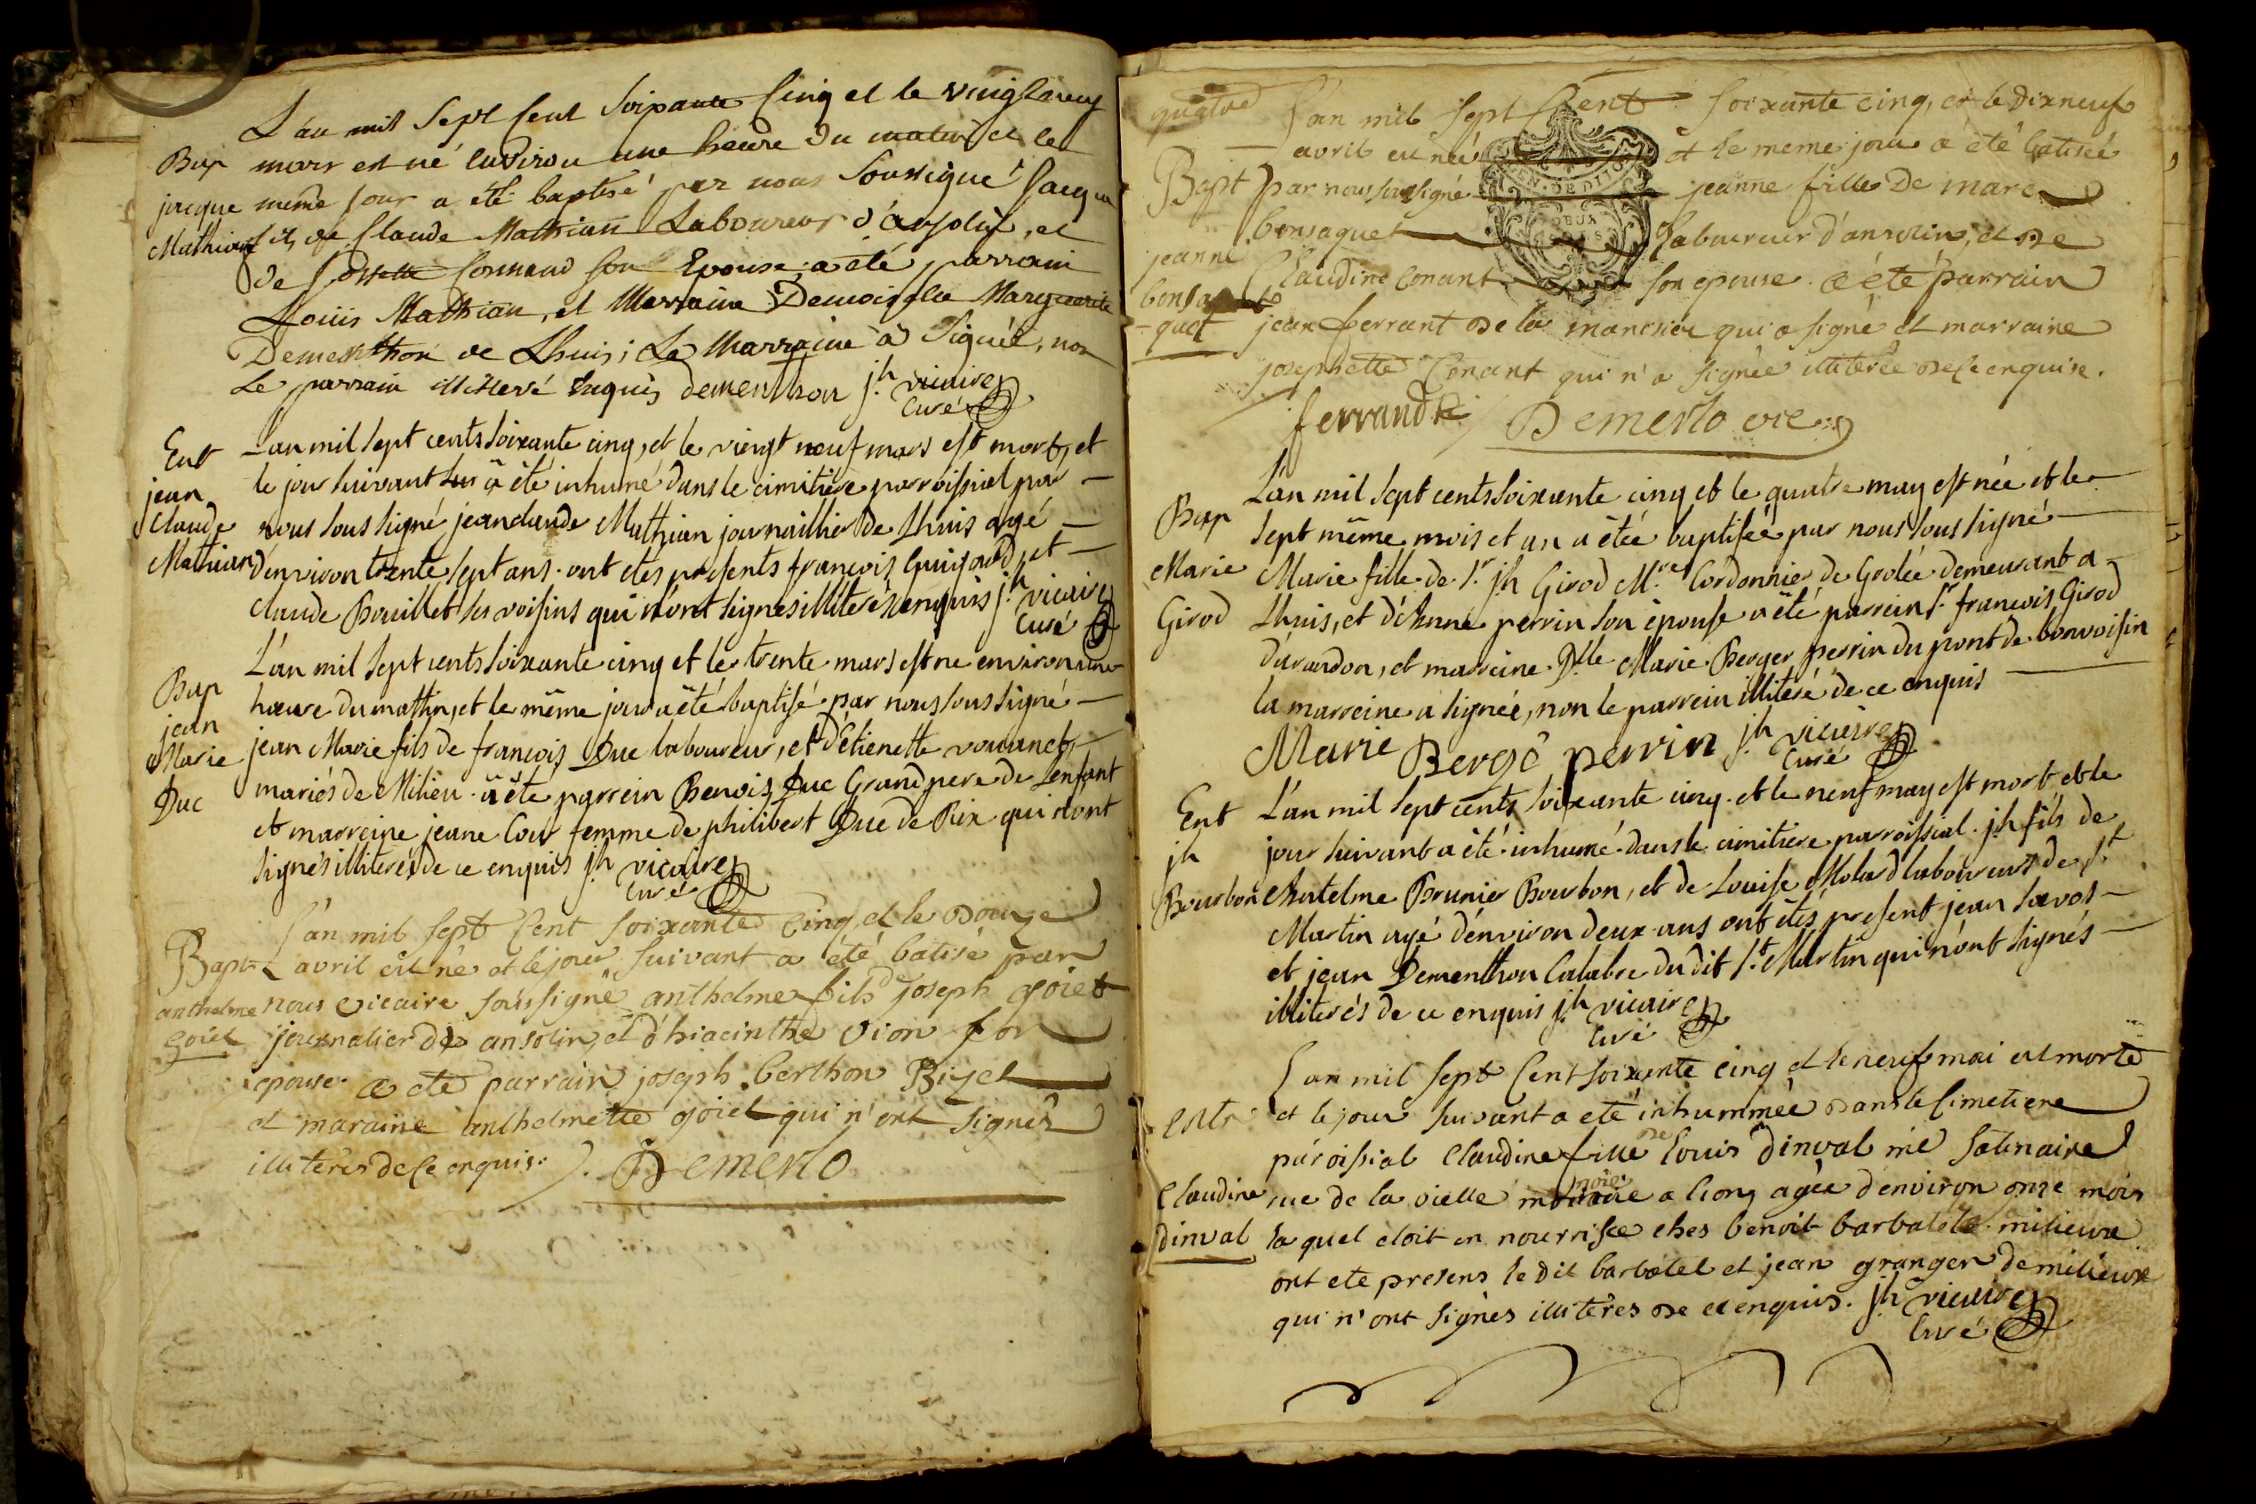 L'an mil sept cent soixante cinq et le vingt neuf
Bap mars est né environ une heure du matin et le
jacque même jour a été baptisé par nous soussigné Jacque
Mathian fils de Claude Mathian Laboureur d'ansolin, et
de Josette Connand son Epouse a été parrain
Loüis Mathian, et Marraine Demoiselle Marguerite
Dementhon de Lhuis; La Marraine a signée, non
le parrain illiteré enquis dementhon jh vicaire
Curé
Ent L'an mil sept cents soixante cinq, et le vingt neuf mars est mort, et
jean le jour suivant a été inhumé dans le cimitière parroissial par
Claude nous sous signé jean claude Mathian journaillier de Lhuis agé
Mathian d'environ trente sept ans. ont etés presents françois Guigard, et
Claude Bouillet ses voisins qui n'ont signés illiterés enquis jh vicaire
Curé
L'an mil sept cents soixante cinq et le trente mars est ne environ une
Bap heure du mattin, et le même jour a été baptisé par nous sous signé
jean
Marie jean Marie fils de françois Duc laboureur, et d'Etienette
Duc mariés de Milieu. a été parrein Benois Duc Grand pere de l'enfant
et marreine jeane Cour femme de philibert Duc de Rix qui n'ont
signés illiterés de ce enquis jh vicaire
Curé
L'an mil sept Cent soixante Cinq, et le douze
Bapt avril est né et le jour suivant a été batisé par
anthelme nous vicaire soussigné anthelme fils de joseph goiet
goiet journalier de ansolin, et d'hiacinthe vion son
epouse. a été parrain joseph berthon Bizet
et maraine anthelmette goiet qui n'ont signés
illiterés de ce enquis. Demerlo
quatre L'an mil sept Cent soixante cinq, et le dixneuf
avril est née et le meme jour a été batisée
Bapt par nous soussigné jeanne fille de marc
bonsaquet laboureur d'ansolin, et de
jeanne
bonsa Claudine Conant son epouse. a été parrain
-quet jean ferrant de la qui a signé et marraine
josephette Conant qui n'a signée illiterée de ce enquise.
ferrand Demerlo vic
L'an mil sept cents soixante cinq et le quatre may est née et le
Bap sept même mois et an a étée baptisée par nous sous signé
Marie Marie fille de Sr jh Girod Mre Cordonnier de Grolée demeurant a
Girod Lhuis, et d'Anne perrin son épouse a été parrein Sr françois Girod
d'arandon, et marreine Dlle Marie Berger perrin du pont de bonvoisin
la marreine a signée, non le parrein illiteré de ce enquis
Marie Bergé perrin jh vicaire
Curé
Ent L'an mil sept cents soixante cinq. et le neuf may est mort, et le
jh jour suivant a été inhumé dans le cimitiere parroissial. jh fils de
Bourbon Antelme Brunier Bourbon, et de Louise Molard laboureurs de St
Martin agé d'environ deux ans ont étés present jean
et jean Dementhon Calabre du dit St Martin qui n'ont signés
illiterés de ce enquis jh vicaire
Curé
L'an mil sept Cent soixante cinq et le neuf mai est morte
Entr et le jour suivant a eté inhummée dans le Cimetiere
paroissial Claudine fille de Louis dinval mé satinaire
Claudine rue de la vielle monoie a lion, agée d'environ onze mois
dinval laquel etoit en nourrisse ches benoit barbatel de milieux
ont ete presens le dit barbatel et jean granger de milieux
qui n'ont signés illiterés de ce enquis. jh vicaire
Curé